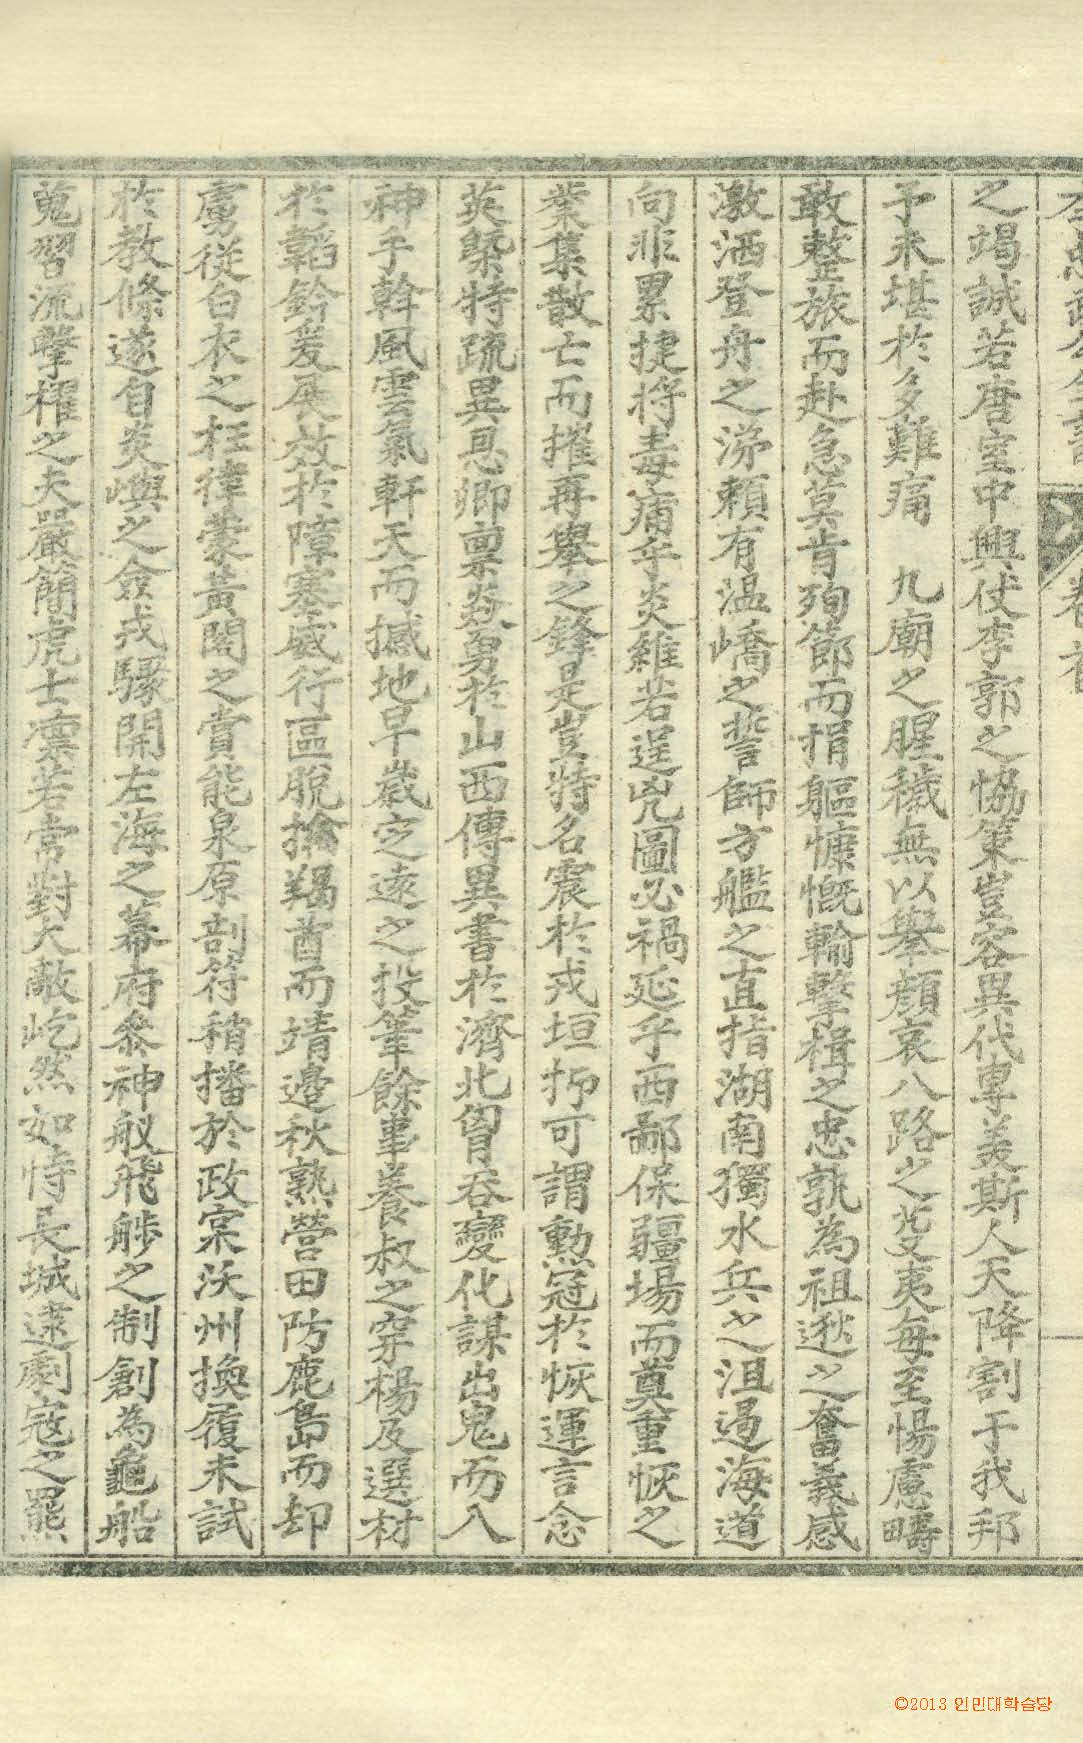 李忠武公全書 卷首
之竭誠若唐室中興仗李郭之恊策豈容異代專美斯人天降割于我邦
予未堪於多難痛 九廟之腥穢無以擧顔哀八路之芟夷每至惕慮疇
敢整旅而赴急莫肯殉節而捐軀慷慨輸擊楫之忠孰為祖逖之奮義感
激洒登舟之涕賴有温嶠之誓師方艦之直指湖南獨水兵之沮遏海道
向非累捷將毒痡乎炎維若逞兇圖必禍延乎西鄙保疆場而奠重恢之
業集散亡而摧再擧之鋒是豈特名震於戎垣抑可謂勲冠於恢運言念
英槩特疏異恩卿禀焱勇於山西傳異書於濟北胷吞變化謀出鬼而入
神手斡風雲氣軒天而撼地早歲定遠之投筆餘事養叔之穿楊及選材
於韜鈐爰展效於障塞威行區脫擒羯酋而靖邊秋熟營田防鹿島而却
虜從白衣之枉律蒙黃閤之賞能泉原剖符稍播於政寀沃州換履未試
於教條遂自炎嶼之僉戎驟開左海之幕府叅神舣飛艄之制創為龜船
蒐習流擊櫂之夫嚴簡虎士凛若常對大敵屹然如恃長城逮劇寇之羆
©2013 인민대학습당